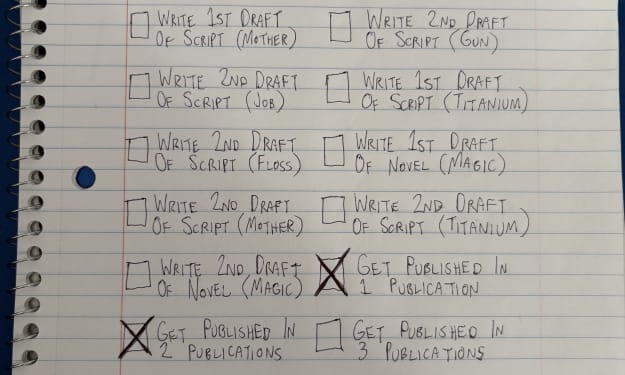 Write 1st Draft
Of Script (Mother)
Write 2nd Draft
Of Script (Gun)
Write 2nd Draft
Of Script (Job)
Write 1st Draft
Of Script (Titanium)
Write 2nd Draft
Of Script (Floss)
Write 1st Draft
Of Novel (Magic)
Write 2nd Draft
Of Script (Mother)
Write 2nd Draft
Of Script (Titanium)
Write 2nd Draft
Of Novel (Magic)
Get Published In
1 Publication
Get Published In
2 Publications
Get Published In
3 Publications